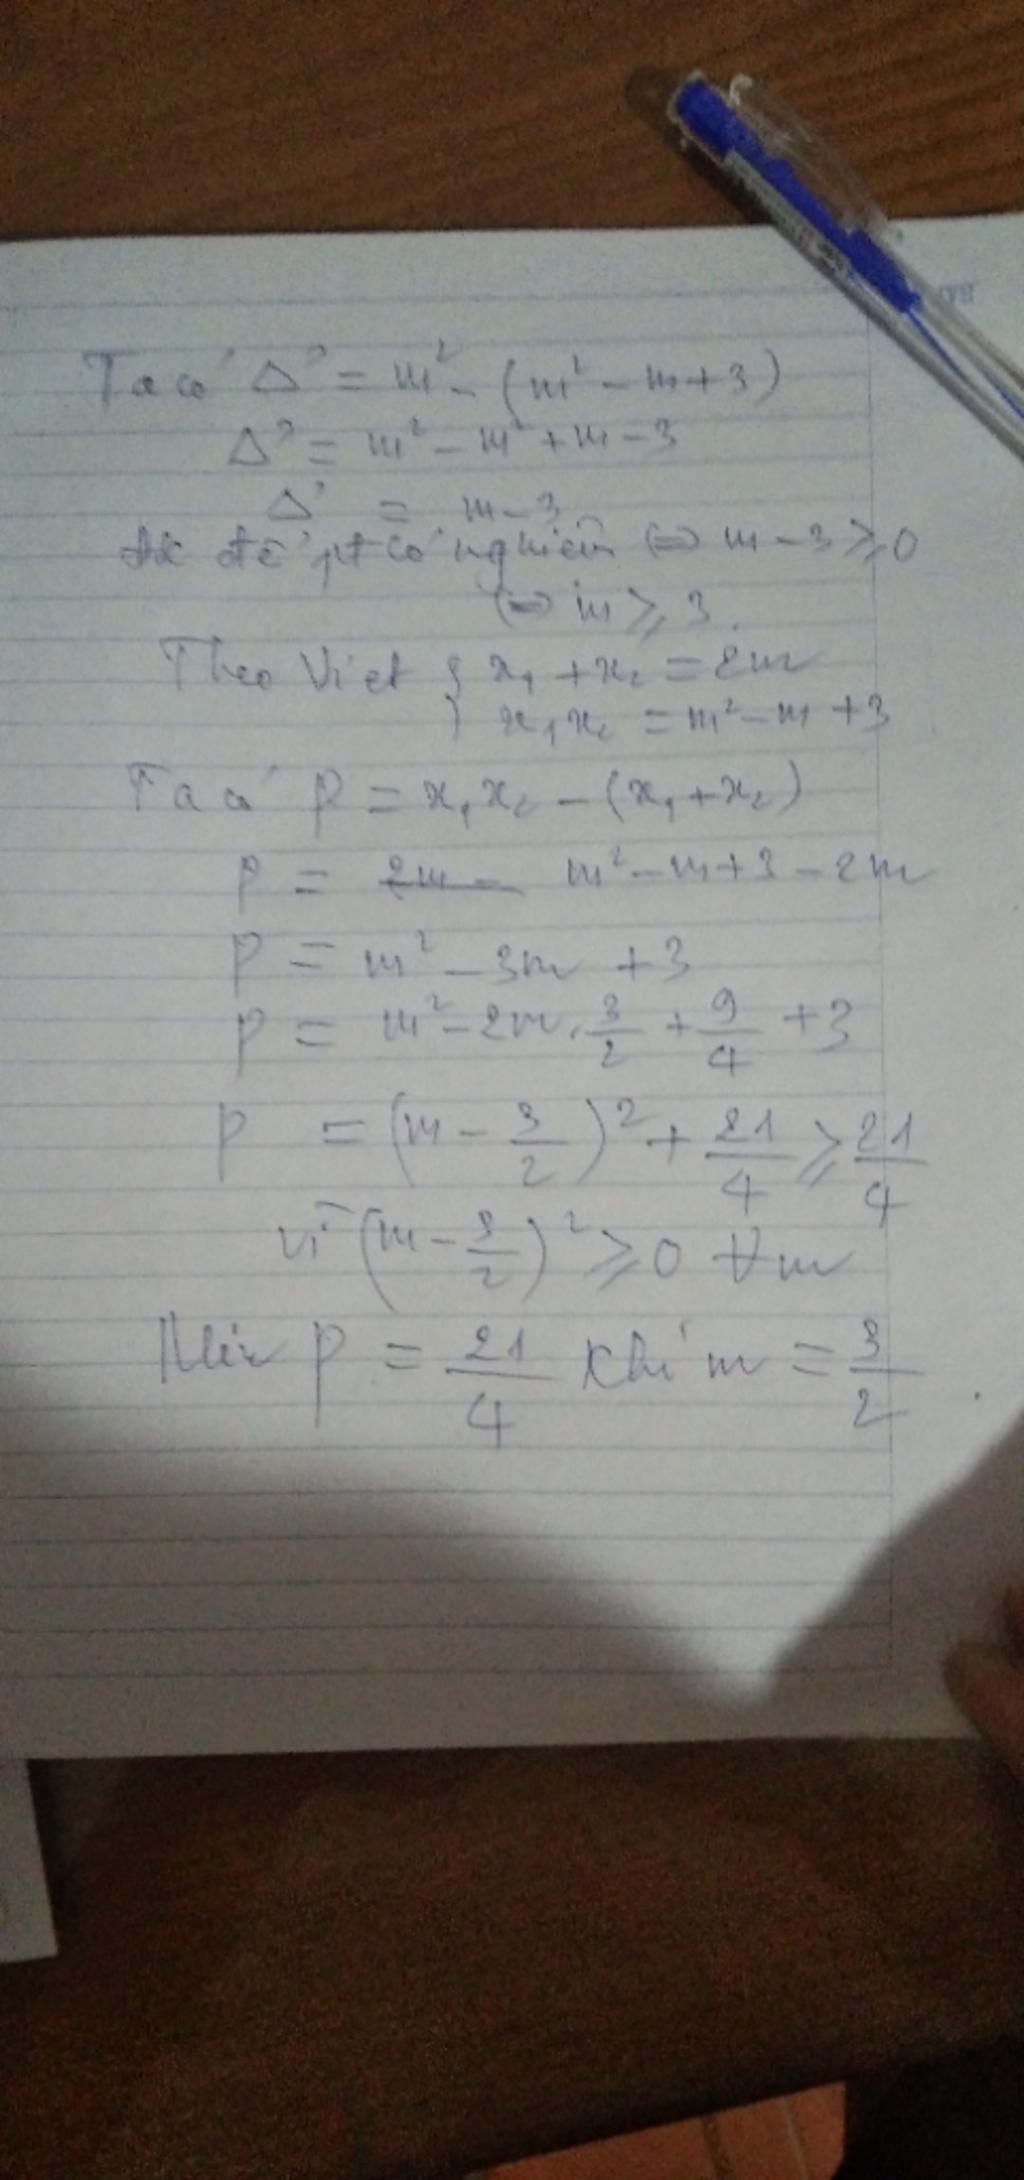 Ta có Δ' = m² - (m² - m + 3)
Δ' = m² - m² + m - 3
Δ' = m - 3
đk để pt có nghiệm ⇔ m - 3 ≥ 0
⇔ m ≥ 3.
Theo Viet { x₁ + x₂ = 2m
x₁x₂ = m² - m + 3
Ta có P = x₁x₂ - (x₁ + x₂)
P = 2m - m² - m + 3 - 2m
P = m² - 3m + 3
P = m² - 2m . 3/2 + 9/4 + 3
P = (m - 3/2)² + 21/4 ≥ 21/4
vì (m - 3/2)² ≥ 0 ∀m
Min P = 21/4 khi m = 3/2